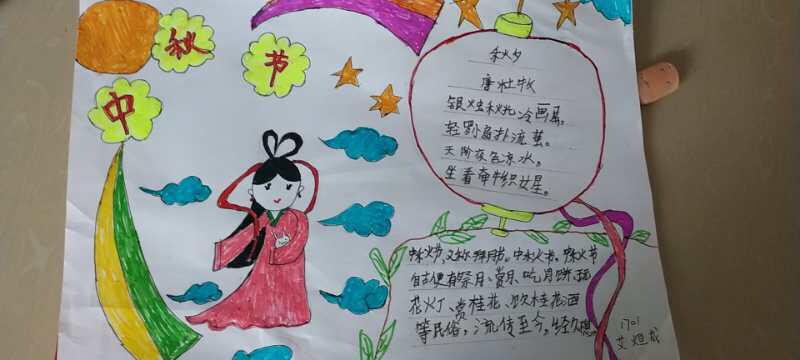 中秋节
秋夕
唐杜牧
银烛秋光冷画屏。
轻罗小扇扑流萤。
天阶夜色凉水。
坐看牵牛织女星。
中秋节、又称拜月节。中秋节。中秋节
自古便有祭月、赏月、吃月饼、玩
花火丁、赏桂花、饮桂花酒
等民俗,流传至今。经久
1701